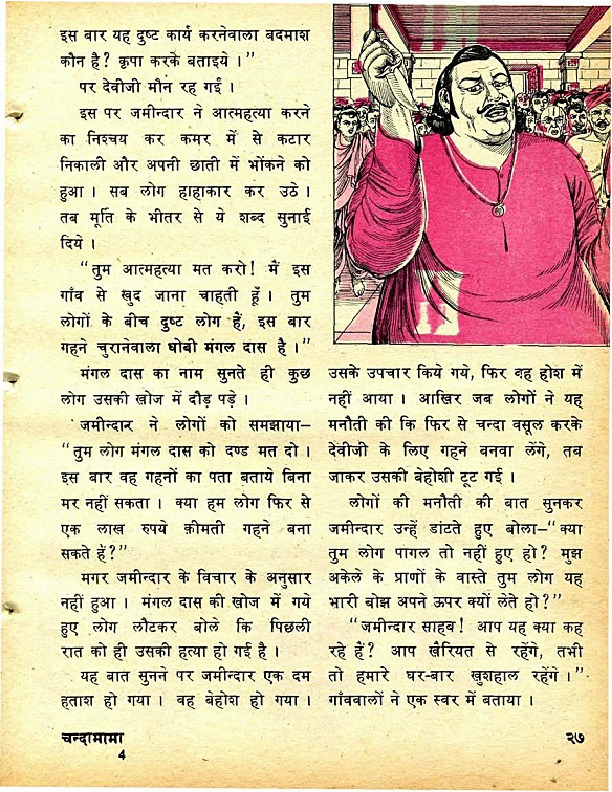 इस बार यह दुष्ट कार्य करनेवाला बदमाश
कौन है? कृपा करके बताइये।”
पर देवीजी मौन रह गईं।
इस पर जमीन्दार ने आत्महत्या करने
का निश्चय कर कमर में से कटार
निकाली और अपनी छाती में भोंकने को
हुआ। सब लोग हाहाकार कर उठे।
तब मूर्ति के भीतर से ये शब्द सुनाई
दिये।
“तुम आत्महत्या मत करो! मैं इस
गाँव से खुद जाना चाहती हूँ। तुम
लोगों के बीच दुष्ट लोग हैं, इस बार
गहने चुरानेवाला धोबी मंगल दास है।”
मंगल दास का नाम सुनते ही कुछ
लोग उसकी खोज में दौड़ पड़े।
जमीन्दार ने लोगों को समझाया–
“तुम लोग मंगल दास को दण्ड मत दो।
इस बार वह गहनों का पता बताये बिना
मर नहीं सकता। क्या हम लोग फिर से
एक लाख रुपये क़ीमती गहने बना
सकते हैं?”
मगर जमीन्दार के विचार के अनुसार
नहीं हुआ। मंगल दास की खोज में गये
हुए लोग लौटकर बोले कि पिछली
रात को ही उसकी हत्या हो गई है।
यह बात सुनने पर जमीन्दार एक दम
हताश हो गया। वह बेहोश हो गया।
उसके उपचार किये गये, फिर वह होश में
नहीं आया। आखिर जब लोगों ने यह
मनौती की कि फिर से चन्दा वसूल करके
देवीजी के लिए गहने बनवा लेंगे, तब
जाकर उसकी बेहोशी टूट गई।
लोगों की मनौती की बात सुनकर
जमीन्दार उन्हें डांटते हुए बोला–“क्या
तुम लोग पागल तो नहीं हुए हो? मुझ
अकेले के प्राणों के वास्ते तुम लोग यह
भारी बोझ अपने ऊपर क्यों लेते हो?”
“जमीन्दार साहब! आप यह क्या कह
रहे हैं? आप खैरियत से रहेंगे, तभी
तो हमारे घर-बार खुशहाल रहेंगे।”
गाँववालों ने एक स्वर में बताया।
चन्दामामा
4
२७